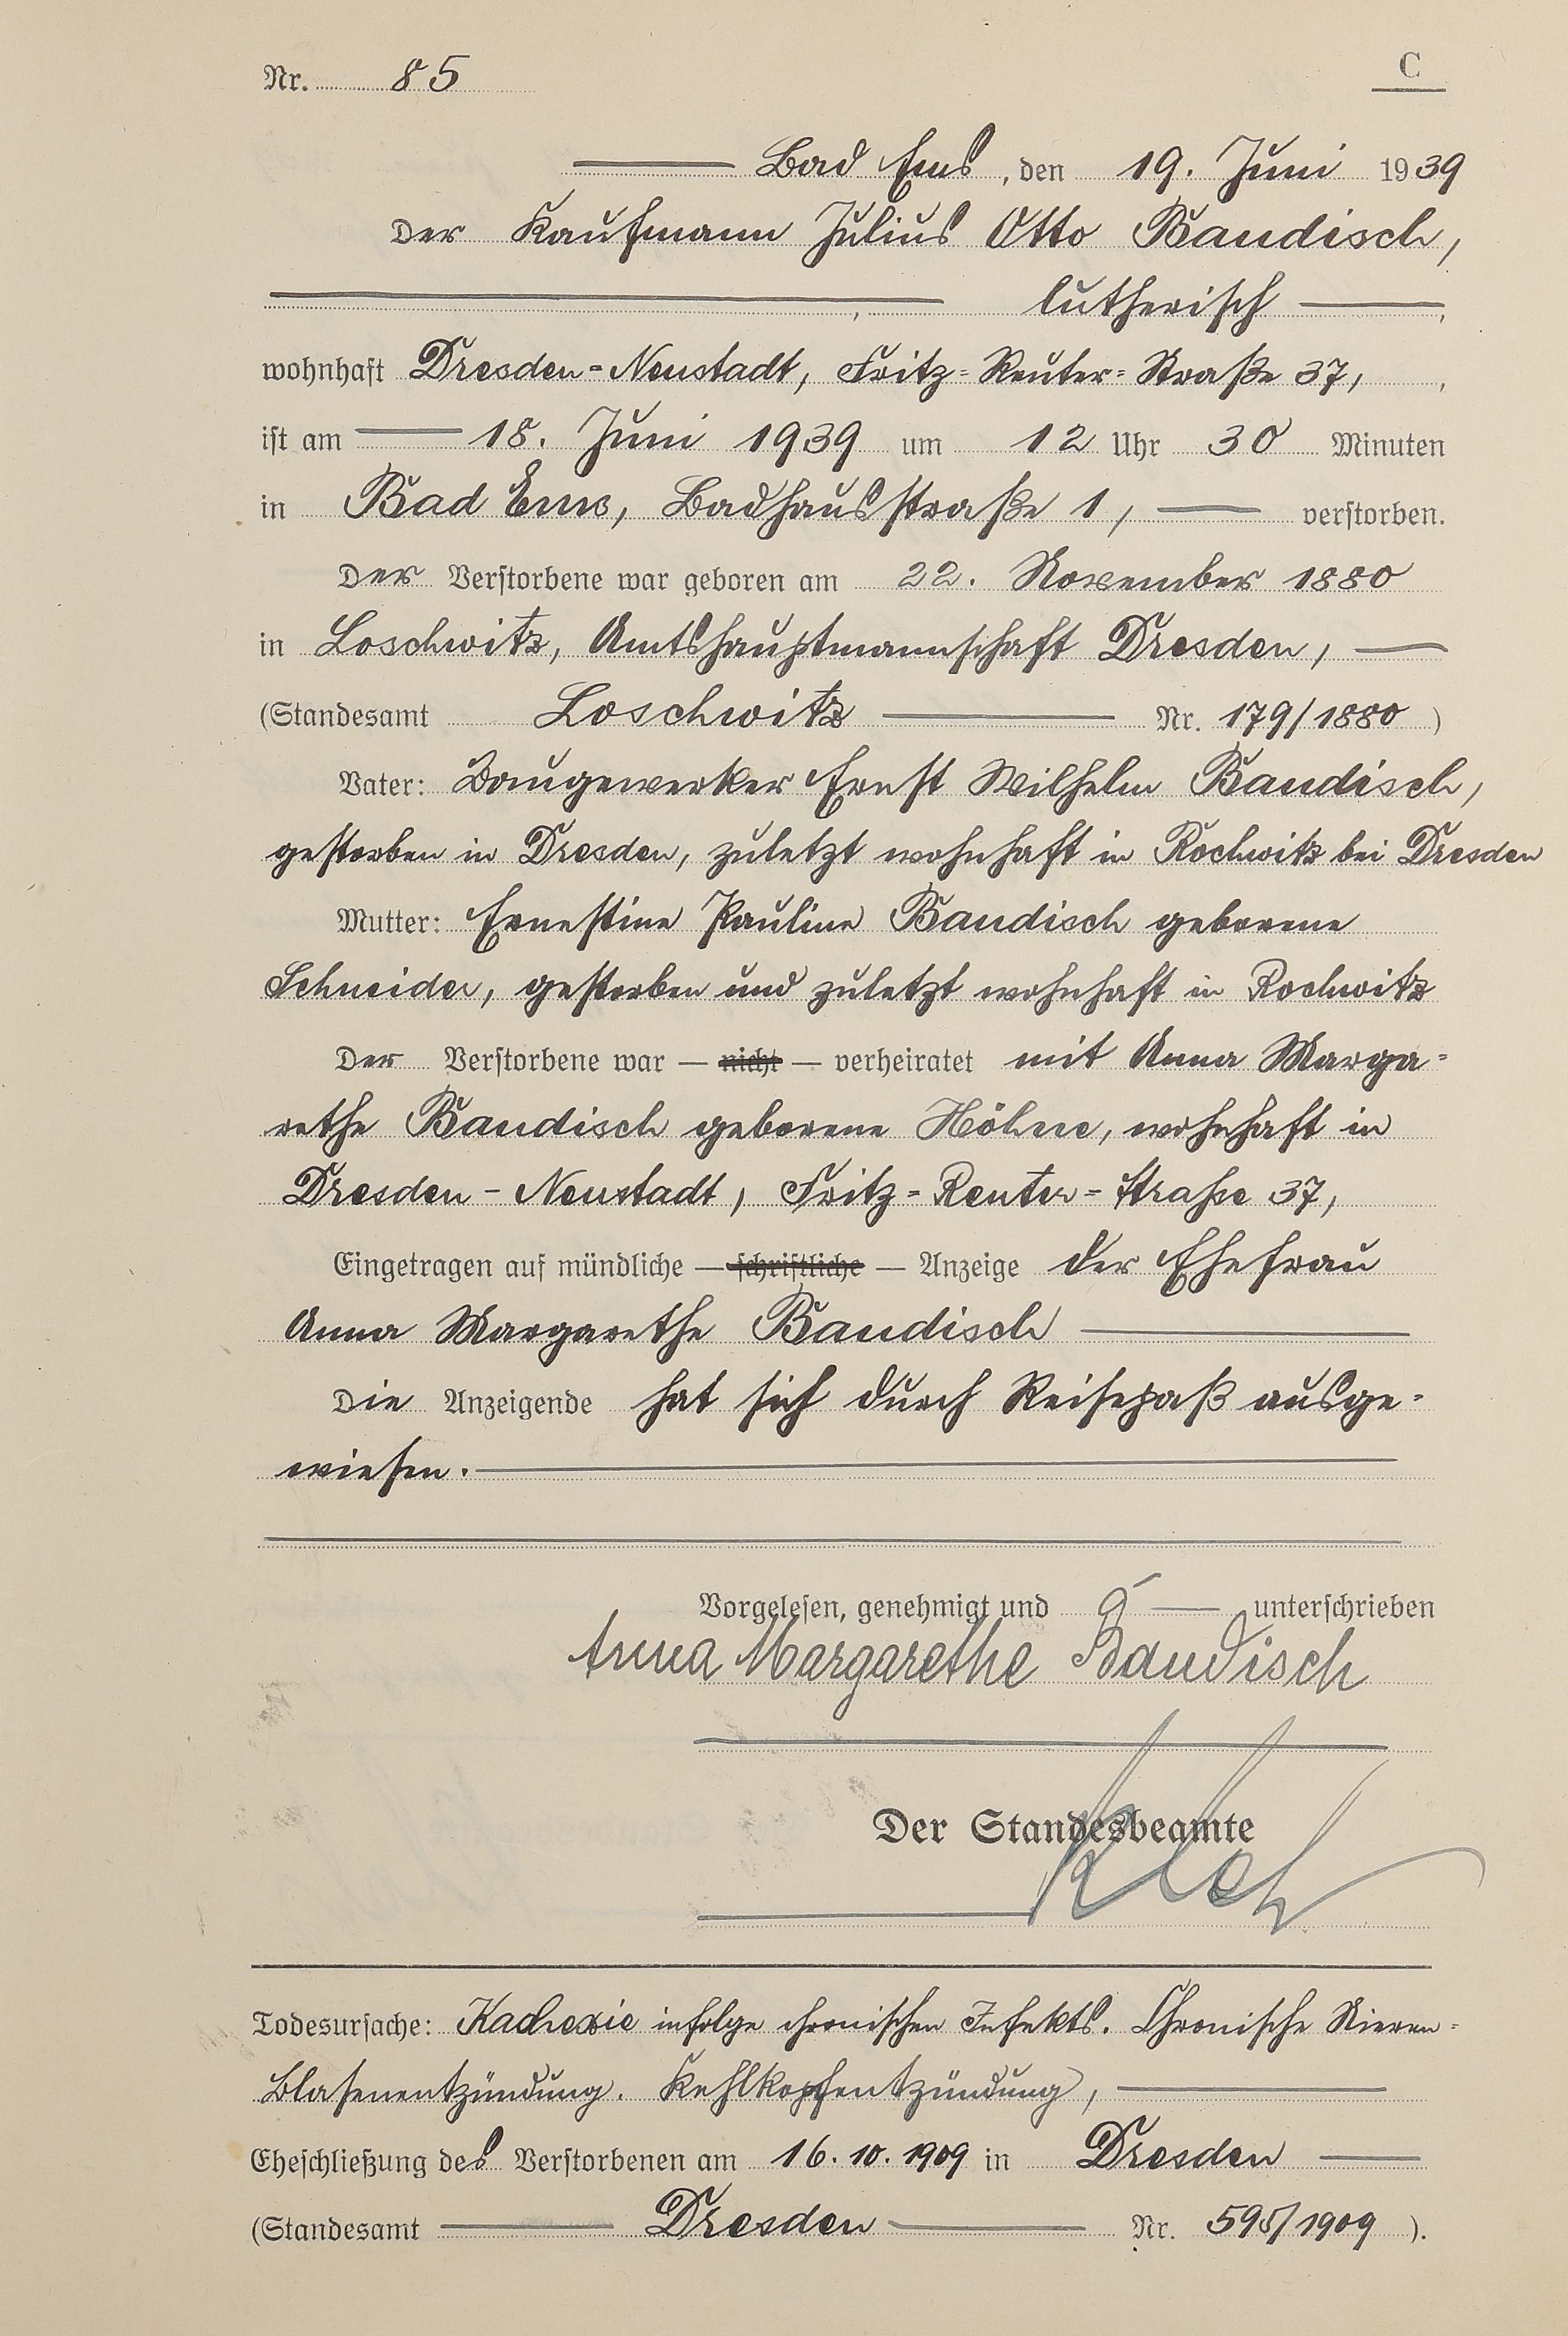 Nr. 85 C
Bad Ems, den 19. Juni 1939
Der Kaufmann Julius Otto Baudisch,
lutherisch,
wohnhaft Dresden-Neustadt, Fritz-Reuter-Straße 37,
ist am 18. Juni 1939 um 12 Uhr 30 Minuten
in Bad Ems, Badhausstraße 1, verstorben.
Der Verstorbene war geboren am 22. November 1880
in Loschwitz, Amtshauptmannschaft Dresden,
(Standesamt Loschwitz Nr. 179/1880)
Vater: Baugewerker Ernst Wilhelm Baudisch,
gestorben in Dresden, zuletzt wohnhaft in Rochwitz bei Dresden
Mutter: Ernestine Pauline Baudisch geborene
Schneider, gestorben und zuletzt wohnhaft in Rochwitz
Der Verstorbene war — nicht — verheiratet mit Anna Marga-
rethe Baudisch geborene Höhne, wohnhaft in
Dresden-Neustadt, Fritz-Reuter-Strasse 37,
Eingetragen auf mündliche — schriftliche — Anzeige der Ehefrau
Anna Margarethe Baudisch
Die Anzeigende hat sich durch Reisepaß ausge-
wiesen.
Vorgelesen, genehmigt und unterschrieben
Anna Margarethe Baudisch
Der Standesbeamte
Todesursache: Kachexie infolge chronischen Infekts. Chronische Nieren-
Blasenentzündung. Kehlkopfentzündung,
Eheschließung des Verstorbenen am 16.10.1909 in Dresden
(Standesamt Dresden Nr. 595/1909).